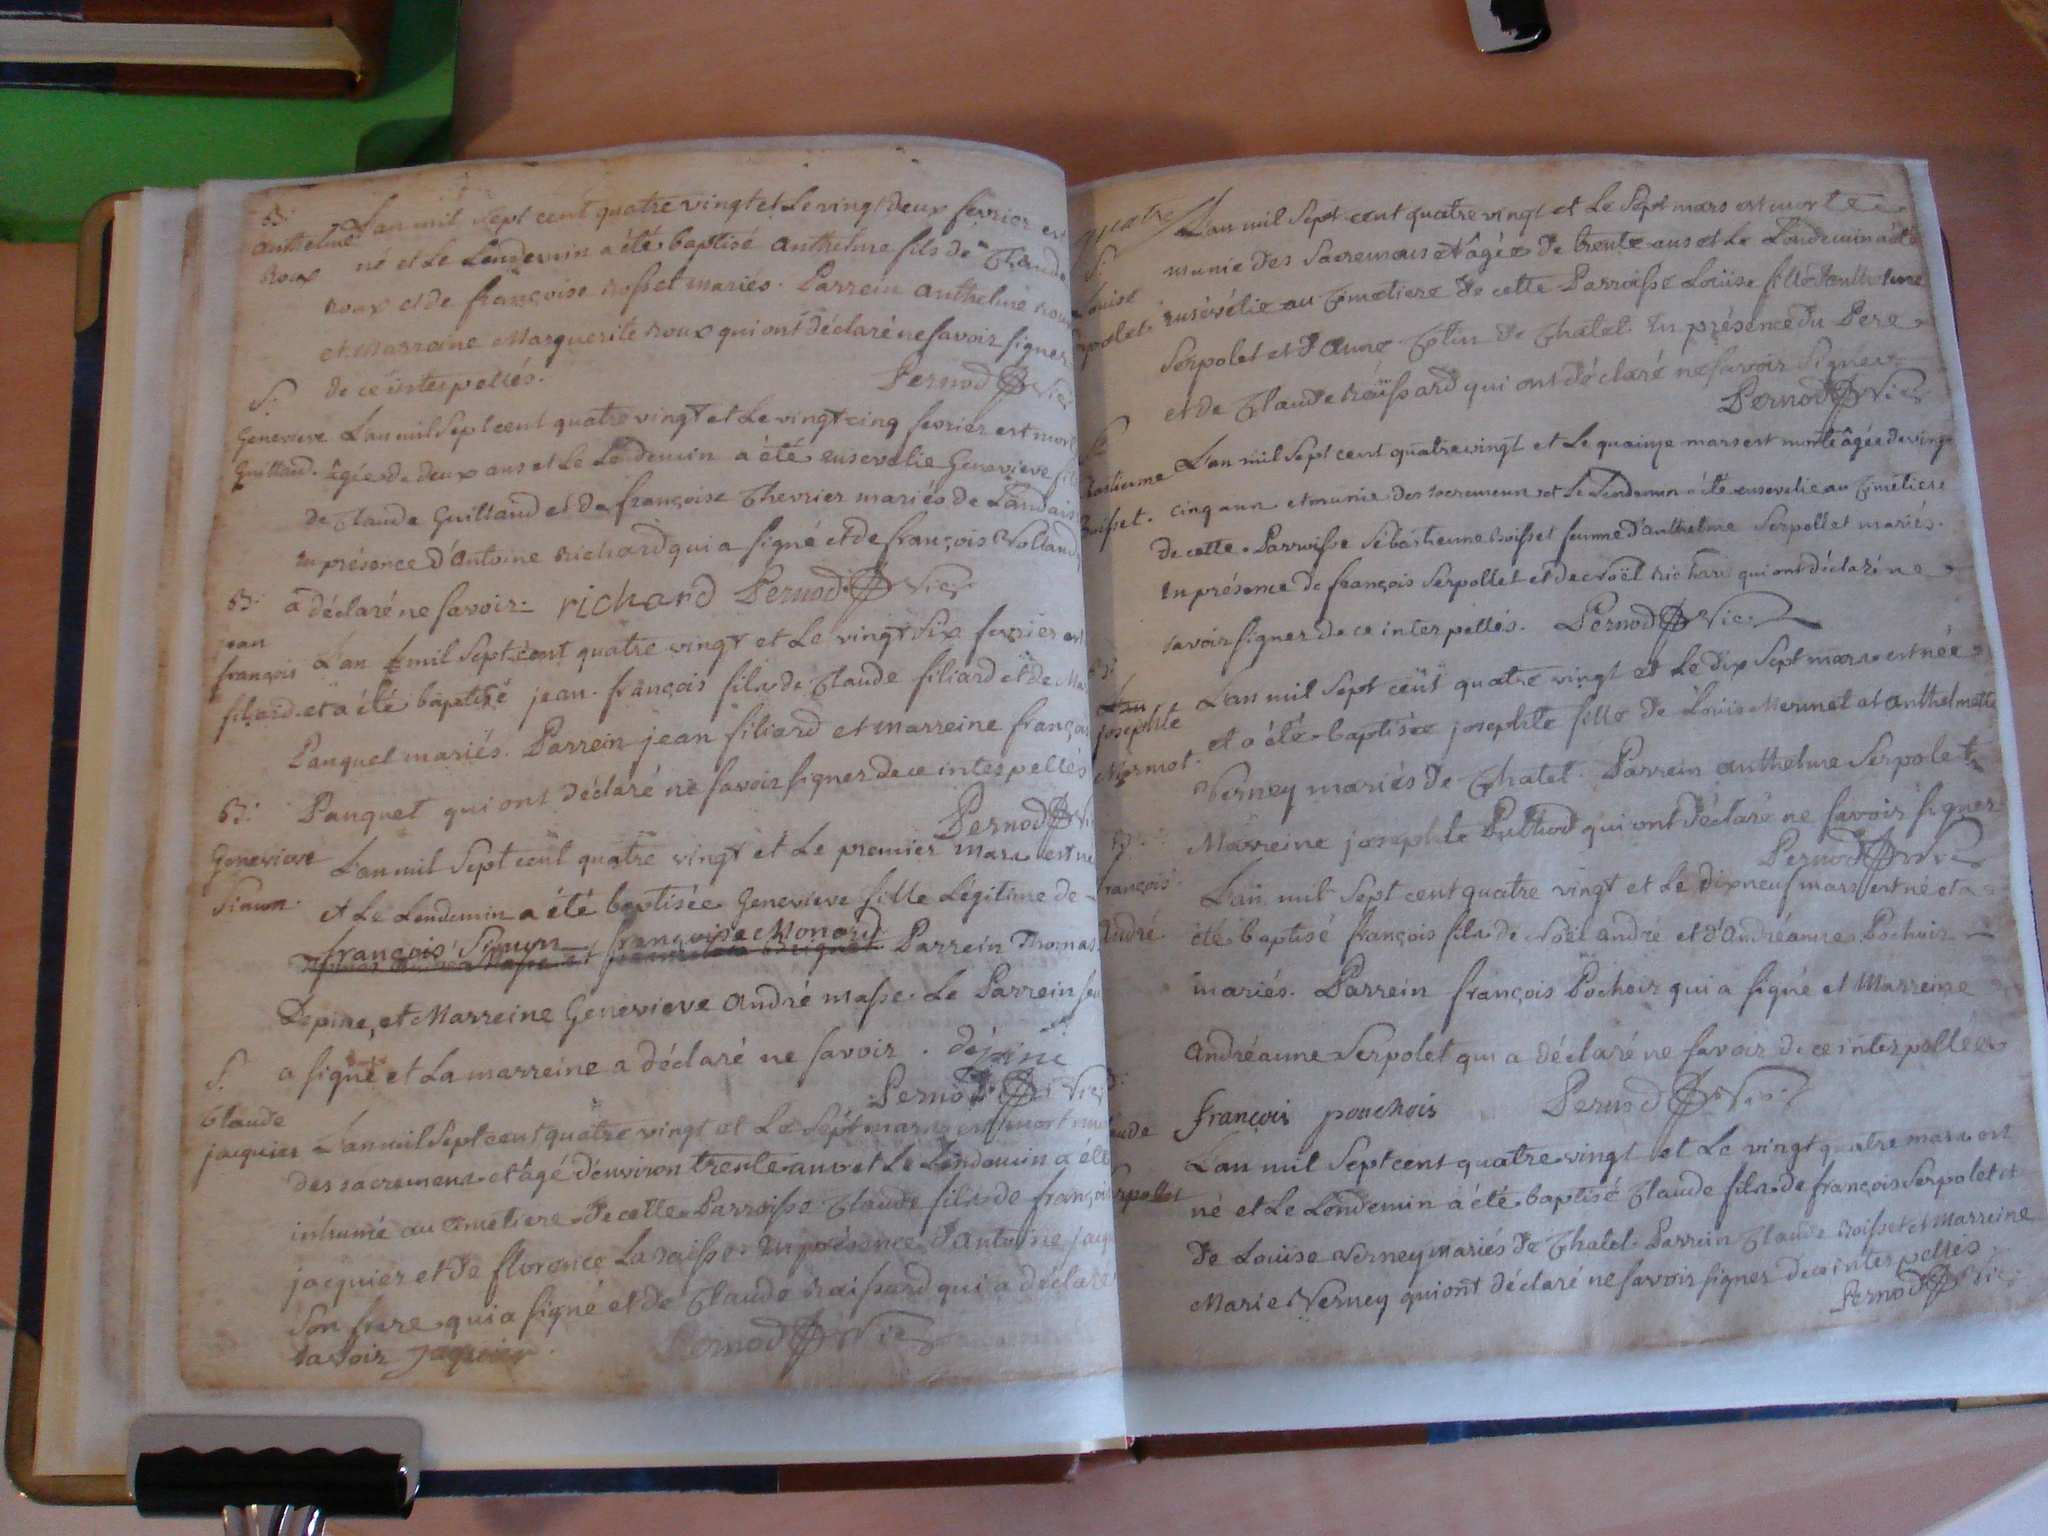 B:
anthelme
Roux
L'an mil sept cent quatre vingt et Le vingt deux fevrier est
né et Le Lendemin a été baptisé anthelme fils de Claude
roux et de françoise rosset mariés. Parrein anthelme roux
et Marraine Marguerite roux qui ont déclaré ne savoir signer
de ce interpellés.
Pernod Vic:
S:
Genevieve
Guilland.
L'an mil sept cent quatre vingt et Le vingt cinq fevrier est mor
âgée de deux ans et Le Lendemin a été ensevelie Genevieve
de Claude Guilland et de françoise Chevrier mariés de
en présence d'antoine richard qui a signé et de françois Volland
a déclaré ne savoir: richard Pernod Vic:
B:
jean
françois
filiard
L'an mil sept cent quatre vingt et Le vingt six fevrier est
et a été baptisé jean françois fils de Claude filiard et de
Panquet mariés. Parrein jean filiard et marreine françoi
Panquet qui ont déclaré ne savoir signer de ce interpellés
Pernod Vi
B:
Genevieve
Simon.
L'an mil sept cent quatre vingt et Le premier mars est né
et Le Lendemin a été baptisée Genevieve fille Légitime de
françois Simon et françoise Monard Parrein Thomas
Depine, et Marreine Genevieve andré masse. Le Parrein seu
a signé et La marreine a déclaré ne savoir. dépine
Pernod Vic:
S:
Claude
jacquier
L'an mil sept cent quatre vingt et Le sept mars est mort mu
des sacremens et âgé d'environ trente ans et Le Lendemin a été
inhumé au Cimetiere de cette Parroisse Claude fils de françois
jacquier et de florence La raisse. En présence d'antoine jacqu
son frere qui a signé et de Claude raissard qui a déclaré
savoir jaquier.
Pernod Vic:
quatre
S:
Louise
rpolet.
L'an mil sept cent quatre vingt et Le sept mars est morte
munie des sacremens et âgée de trente ans et Le Lendemin a été
ensevélie au Cimetiere de cette Parroisse Loüise fille d'anthelme
Serpolet et d'anne de Chatel. En présence du Pere
et de Claude raüssard qui ont déclaré ne savoir signer
Pernod Vic:
S:
bastienne
roisset.
L'an mil sept cent quatre vingt et Le quainze mars est morte âgée de vingt
cinq ann et munie des sacremens et Le Lendemin a été ensevelie au Cimetiere
de cette Parroisse Sébastienne roisset femme d'anthelme Serpollet mariés.
En présence de françois Serpollet et de noël richard qui ont déclaré ne
savoir signer de ce interpellés. Pernod Vic:
B:
josephte
Mermet.
L'an mil sept cent quatre vingt et Le dix sept mars est née
et a été baptisée josephte fille de Loüis Mermet et anthelmette
Verney mariés de Chatel. Parrein anthelme Serpolet
Marreine josephte qui ont déclaré ne savoir signer
Pernod Vic
B:
françois
andré.
L'an mil sept cent quatre vingt et Le dix neuf mars est né et a
été baptisé françois fils de Noël andré et d'andréanne Pochoir
mariés. Parrein françois Pochoir qui a signé et Marreine
andréanne Serpolet qui a déclaré ne savoir de ce interpellée
françois pouchois Pernod Vic:
aude
rpollet
L'an mil sept cent quatre vingt et Le vingt quatre mars est
né et Le Lendemin a été baptisé Claude fils de françois Serpolet et
de Loüise Verney mariés de Chatel. Parrein Claude roisset et Marreine
Marie Verney qui ont déclaré ne savoir signer de ce interpellés
Pernod Vic: